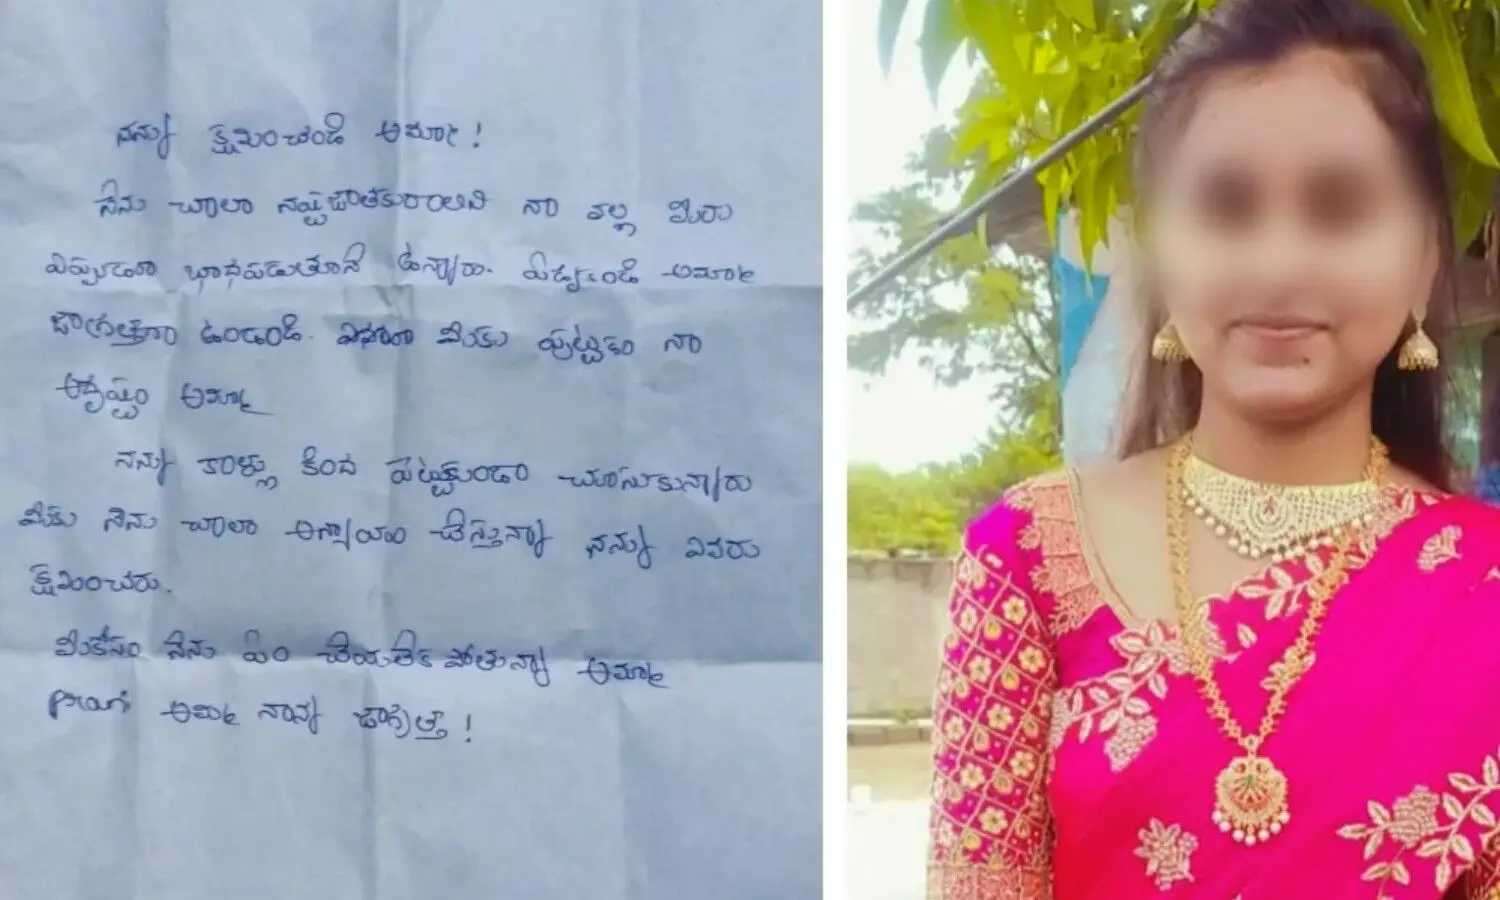 నన్ను క్షమించండి అమ్మా!
నేను చాలా నష్టజాతకురాలిని నా వల్ల మీరు
ఎప్పుడూ బాధపడుతూనే ఉన్నారు. ఏడ్వకండి అమ్మా
జాగ్రత్తగా ఉండండి. మీకు పుట్టటం నా
అదృష్టం అమ్మా
నన్ను కాళ్లు కింద పెట్టకుండా చూసుకున్నారు
మీకు నేను చాలా అన్యాయం చేస్తున్నా నన్ను ఎవరు
క్షమించరు.
మీకోసం నేను ఏం చేయలేక పోతున్నా అమ్మా
అమ్మ నాన్న జాగ్రత్త!